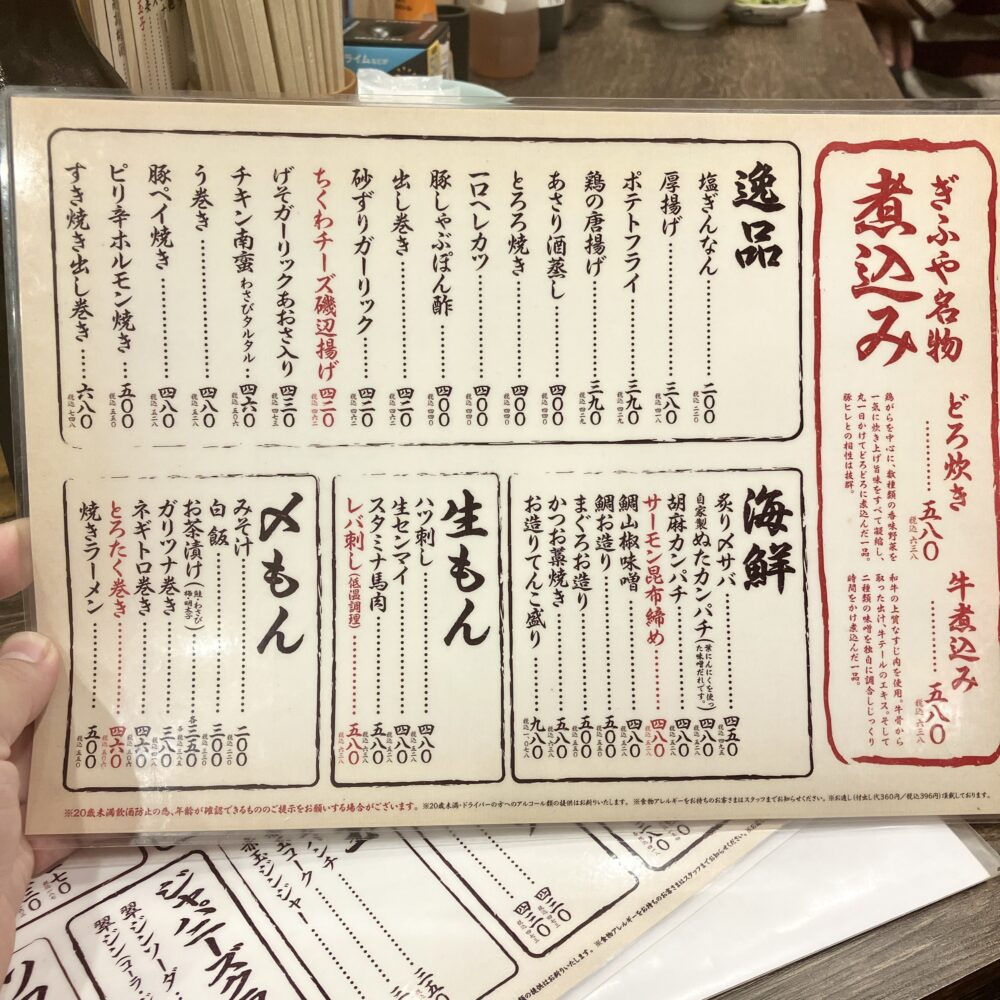 ぎふや名物
煮込み
どろ炊き 五八〇
税込 六三八
鶏がらを中心に、数種類の香味野菜を
一気に炊き上げ旨味をすべて凝縮し、
丸一日かけてどろどろに煮込んだ一品。
豚ヒレとの相性は抜群。
牛煮込み 五八〇
税込 六三八
和牛の上質なすじ肉を使用。牛骨から
取った出汁、牛テールのエキス。そして
二種類の味噌を独自に調合しじっくり
時間をかけ煮込んだ一品。
逸品
塩ぎんなん 二〇〇
税込 二二〇
厚揚げ 三八〇
税込 四一八
ポテトフライ 三九〇
税込 四二九
鶏の唐揚げ 三九〇
税込 四二九
あさり酒蒸し 四〇〇
税込 四四〇
とろろ焼き 四〇〇
税込 四四〇
一口ヘレカツ 四〇〇
税込 四四〇
豚しゃぶぽん酢 四〇〇
税込 四四〇
出し巻き 四二〇
税込 四六二
砂ずりガーリック 四二〇
税込 四六二
ちくわチーズ磯辺揚げ 四二〇
税込 四六二
げそガーリックあおさ入り 四三〇
税込 四七三
チキン南蛮 わさびタルタル 四六〇
税込 五〇六
う巻き 四八〇
税込 五二八
豚ペイ焼き 四八〇
税込 五二八
ピリ辛ホルモン焼き 五〇〇
税込 五五〇
すき焼き出し巻き 六八〇
税込 七四八
海鮮
炙り〆サバ 四五〇
税込 四九五
自家製ぬたカンパチ(葉にんにくを使った味噌だれです。) 四八〇
税込 五二八
胡麻カンパチ 四八〇
税込 五二八
サーモン昆布締め 四八〇
税込 五二八
鯛山椒味噌 四八〇
税込 五二八
鯛お造り 五〇〇
税込 五五〇
まぐろお造り 五八〇
税込 六三八
かつお藁焼き 五八〇
税込 六三八
お造りてんこ盛り 九八〇
税込 一、〇七八
生もん
ハツ刺し 四八〇
税込 五二八
生センマイ 四八〇
税込 五二八
スタミナ馬肉 五八〇
税込 六三八
レバ刺し(低温調理) 五八〇
税込 六三八
〆もん
みそ汁 二〇〇
税込 二二〇
白飯 三〇〇
税込 三三〇
お茶漬け(鮭・わさび 梅・明太子) 各三五〇
ガリツナ巻き 三八〇
税込 四一八
ネギトロ巻き 四六〇
税込 五〇六
とろたく巻き 四六〇
税込 五〇六
焼きラーメン 五〇〇
税込 五五〇
※20歳未満飲酒防止の為、年齢が確認できるもののご提示をお願いする場合がございます。 ※20歳未満・ドライバーの方へのアルコール類の提供はお断りいたします。 ※食物アレルギーをお持ちのお客さまはスタッフまでお知らせください。 ※お通し(付出し代360円/税込396円)頂戴しております。
ジャパニーズクラ
翠ジンソーダ
翠ジンコーラ